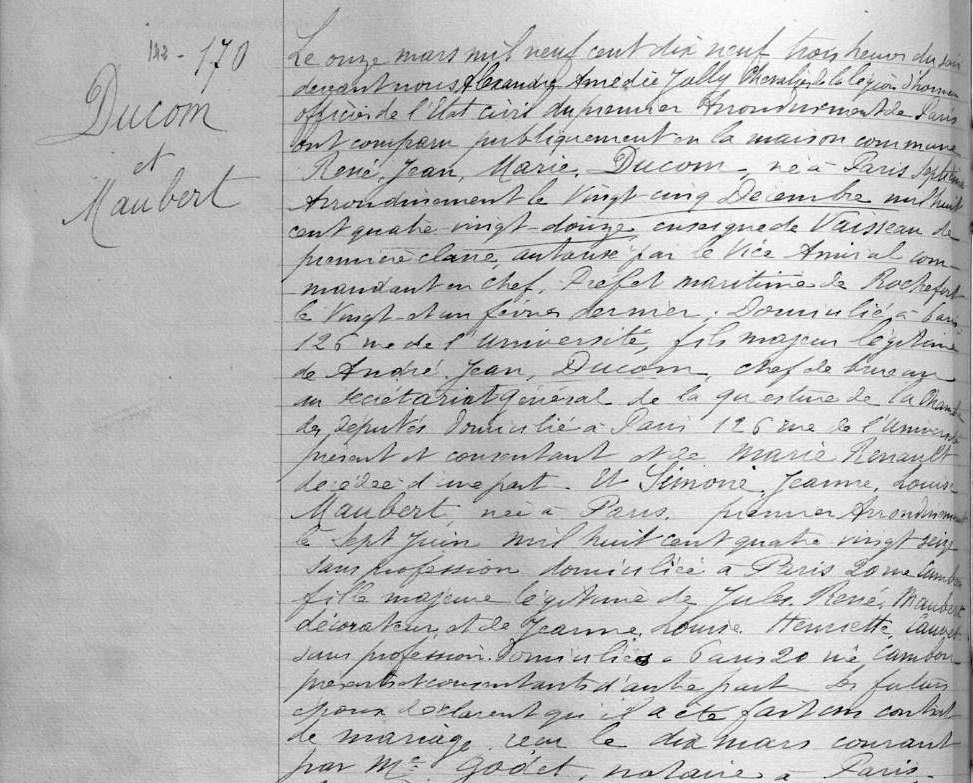 178
Ducom
et
Maubert
Le onze mars mil neuf cent dix neuf trois heures du soir
devant nous Alexandre Amédée Jolly Chevalier de la légion d'honneur
officier de l'Etat civil du premier Arrondissement de Paris
ont comparu publiquement en la maison commune
René, Jean, Marie, Ducom, né à Paris septième
Arrondissement le Vingt cinq Décembre mil huit
cent quatre vingt-douze, enseigne de Vaisseau de
première classe, autorisé par le Vice Amiral com-
mandant en chef, Préfet maritime de Rochefort
le Vingt et un février dernier, Domicilié à Paris
126 rue de l'Université, fils majeur légitime
de André, Jean, Ducom, chef de bureau
au secrétariat général de la questure de la Chambre
des députés Domicilié à Paris 126 rue de l'Université
présent et consentant et de Marie Renault
décédée d'une part. Et Simone, Jeanne, Louise
Maubert, née à Paris, premier Arrondissement
le Sept Juin mil huit cent quatre vingt seize
sans profession domiciliée à Paris 20 rue Cambon
fille majeure légitime de Jules, René, Maubert
décorateur, et de Jeanne, Louise, Henriette,
sans profession. Domiciliés à Paris 20 rue Cambon
présents et consentants d'autre part Les futurs
époux déclarent qu'il a été fait un contrat
de mariage reçu le dix mars courant
par Me Godet, notaire à Paris